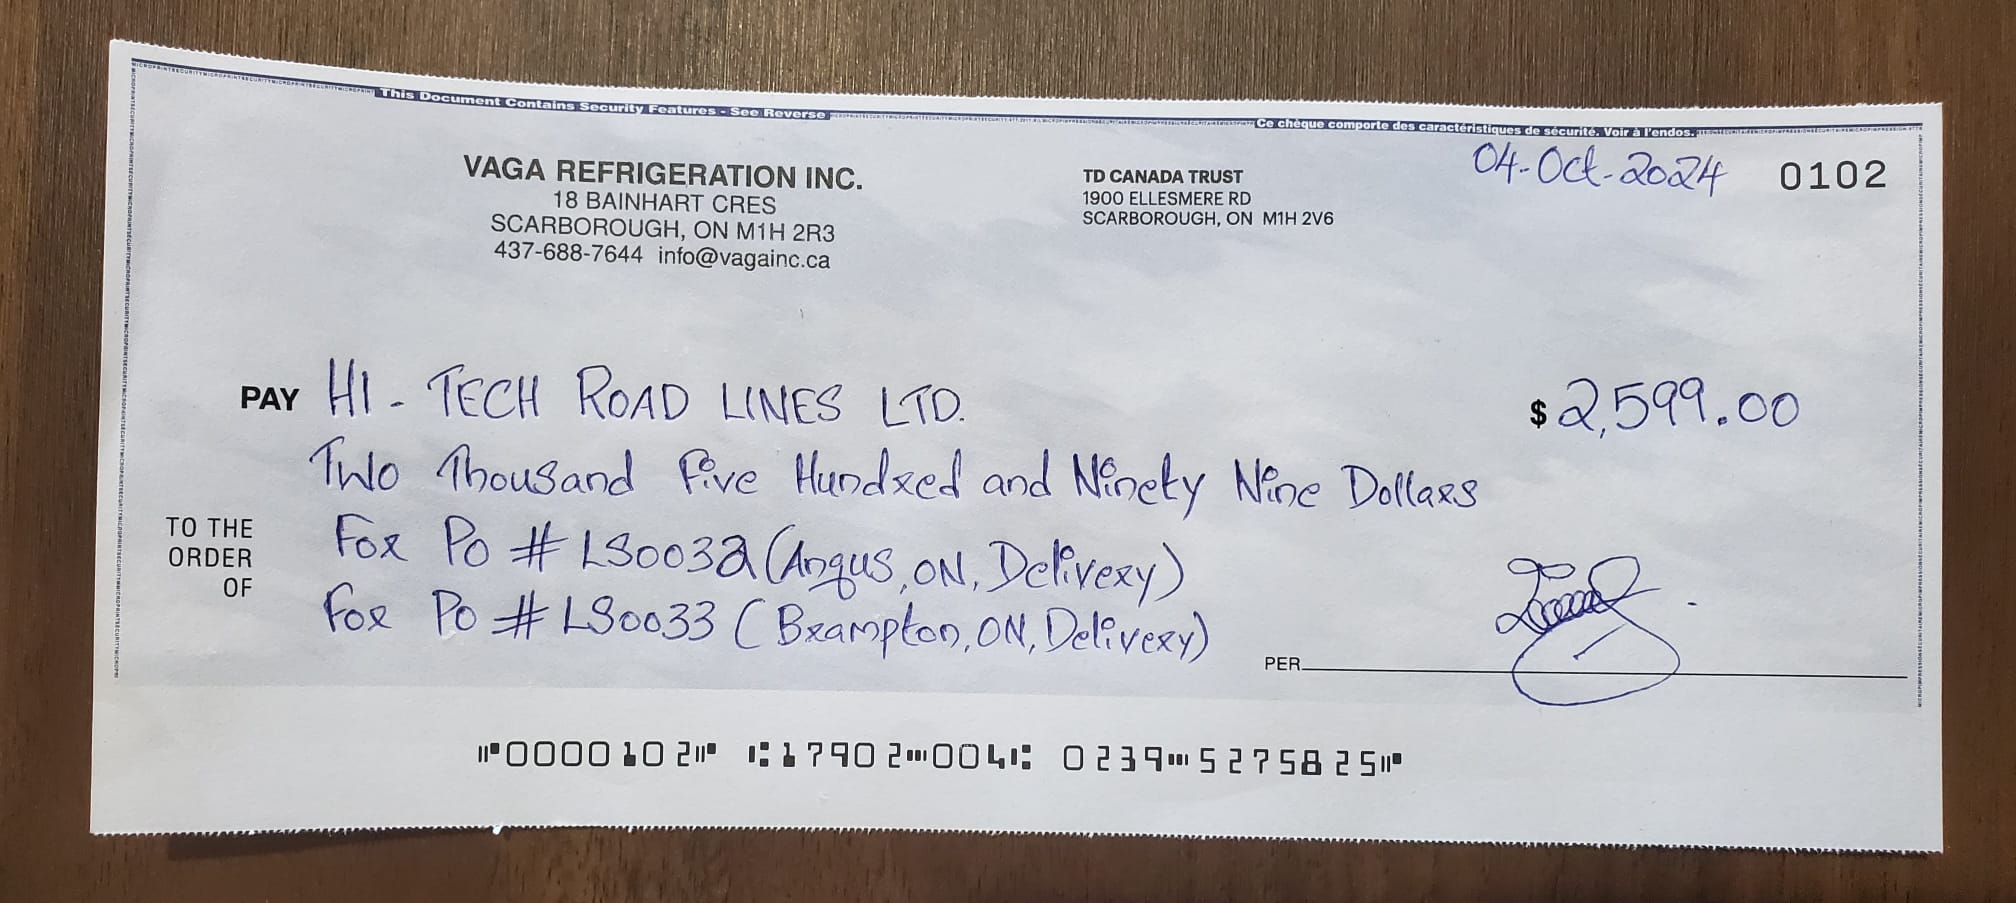 This Document Contains Security Features - See Reverse
Ce chèque comporte des caractéristiques de sécurité. Voir à l'endos.
VAGA REFRIGERATION INC.
18 BAINHART CRES
SCARBOROUGH, ON M1H 2R3
437-688-7644 info@vagainc.ca
TD CANADA TRUST
1900 ELLESMERE RD
SCARBOROUGH, ON M1H 2V6
04-Oct-2024 0102
PAY HI-TECH ROAD LINES LTD. $2,599.00
Two Thousand Five Hundred and Ninety Nine Dollars
TO THE
ORDER
OF
For Po # LS0032 (Angus, ON, Delivery)
For Po # LS0033 (Brampton, ON, Delivery)
PER
⑈0000102⑈ ⑆17902⑉004⑆ 0239⑉5275825⑈